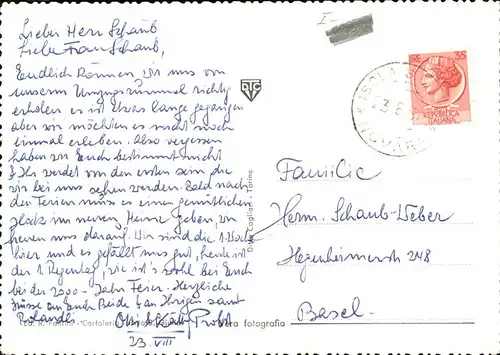 Lieber Herr Schaub
Liebe Frau Schaub,
Endlich können wir uns von
unserem Umzugsrummel richtig
erholen es ist etwas lange gegangen
aber wir möchten es nicht noch
einmal erleben. Also vergessen
haben wir Euch bestimmt nicht
Ihr werdet von den ersten sein die
wir bei uns sehen werden. Bald nach
den Ferien muss es einen gemütlichen
im neuen Heime geben, wir
freuen uns darauf. Wir sind die 1. Woche
hier und es gefällt uns gut, heute ist
der 1. Regentag, wie ist's wohl bei Euch
bei der 2000-Jahr Feier. Herzliche
Grüsse an Euch Beide & an Ihrigen samt
Rolandli
Probst
23. VIII
DTC
Dalla Cagliari - Torino
vera fotografia
35 35
REPVBBLICA
ITALIANA
Familie
Herm. Schaub-Weber
Hegenheimerstr 248
Basel